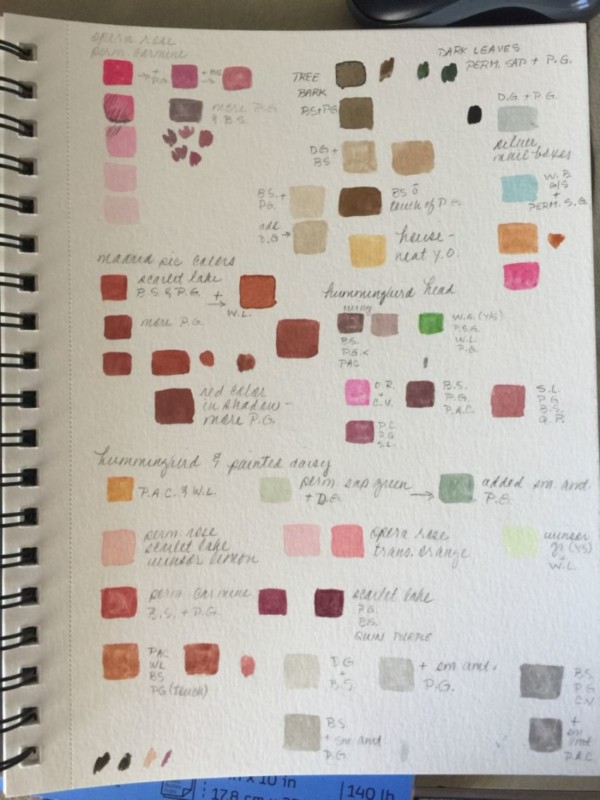 opera rose
perm. carmine
+ P.G.
+ B.S.
more P.G.
& B.S.
TREE
BARK
B.S + P.G
D.G +
B.S
B.S. +
P.G.
add
D.G →
B.S. +
touch of P.G.
house -
neat Y.O.
DARK LEAVES
PERM. SAP + P.G.
D.G. + P.G.
silver
mail boxes
W.B.
G/S
+
PERM. S.G.
madrid pic colors
scarlet lake
B.S. & P.G.
+
→
W.L.
more P.G.
red color
in shadow -
more P.G.
hummingbird head
wing
B.S.
P.G. <
PAC
W.G. (Y/S)
P.S.G.
W.L.
P.G.
O.R.
+
C.V.
B.S.
P.G.
P.A.C.
S.L.
P.G
B.S.
Q.P.
P.C.
P.G
S.L.
hummingbird & painted daisy
P.A.C. & W.L.
perm sap green
+ D.G.
→
added sm. amt.
P.G.
perm. rose
scarlet lake
winsor lemon
opera rose
trans. orange
winsor
gr (YS)
+
W.L.
perm carmine
B.S. + D.G.
scarlet lake
P.G.
B.S.
QUIN PURPLE
PAC
WL
BS
PG (touch)
D.G
+
B.S
+ sm amt.
P.G.
B.S
P.G
C.V.
B.S
+ sm amt
P.G.
+
sm
amt
P.A.C.
x 10 in
17.8 cm x
140 lb